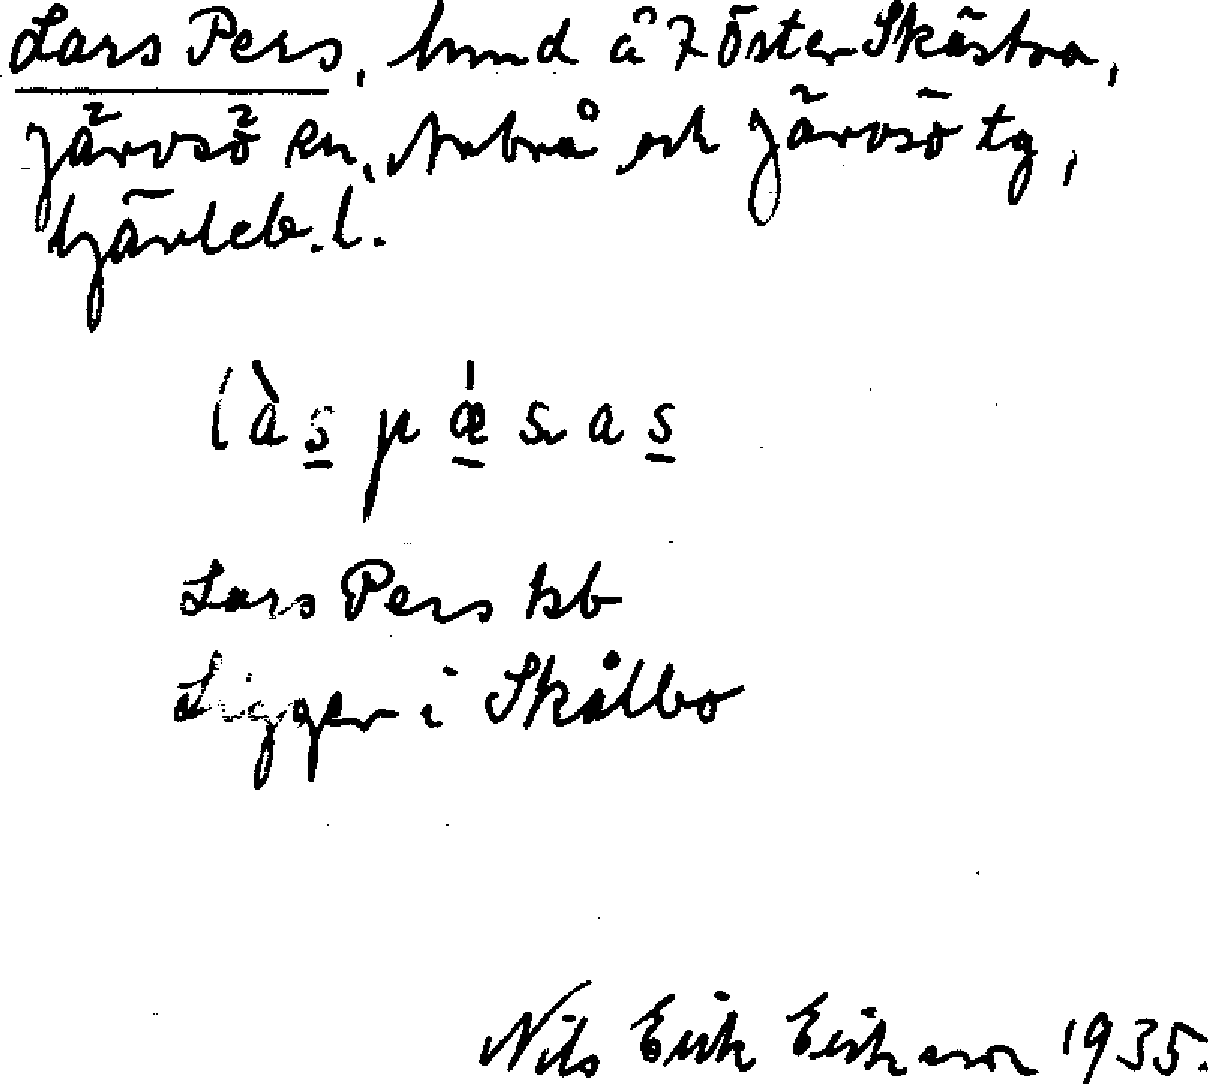 Lars Pers, hmd å 7 Öster Skästra,
Järvsö sn, Arbrå och Järvsö tg,
Gävleb. l.
làs pæ̀sas
Lars Pers hb
Ligger i Skålbo
Nils Erik Eriksson 1935.